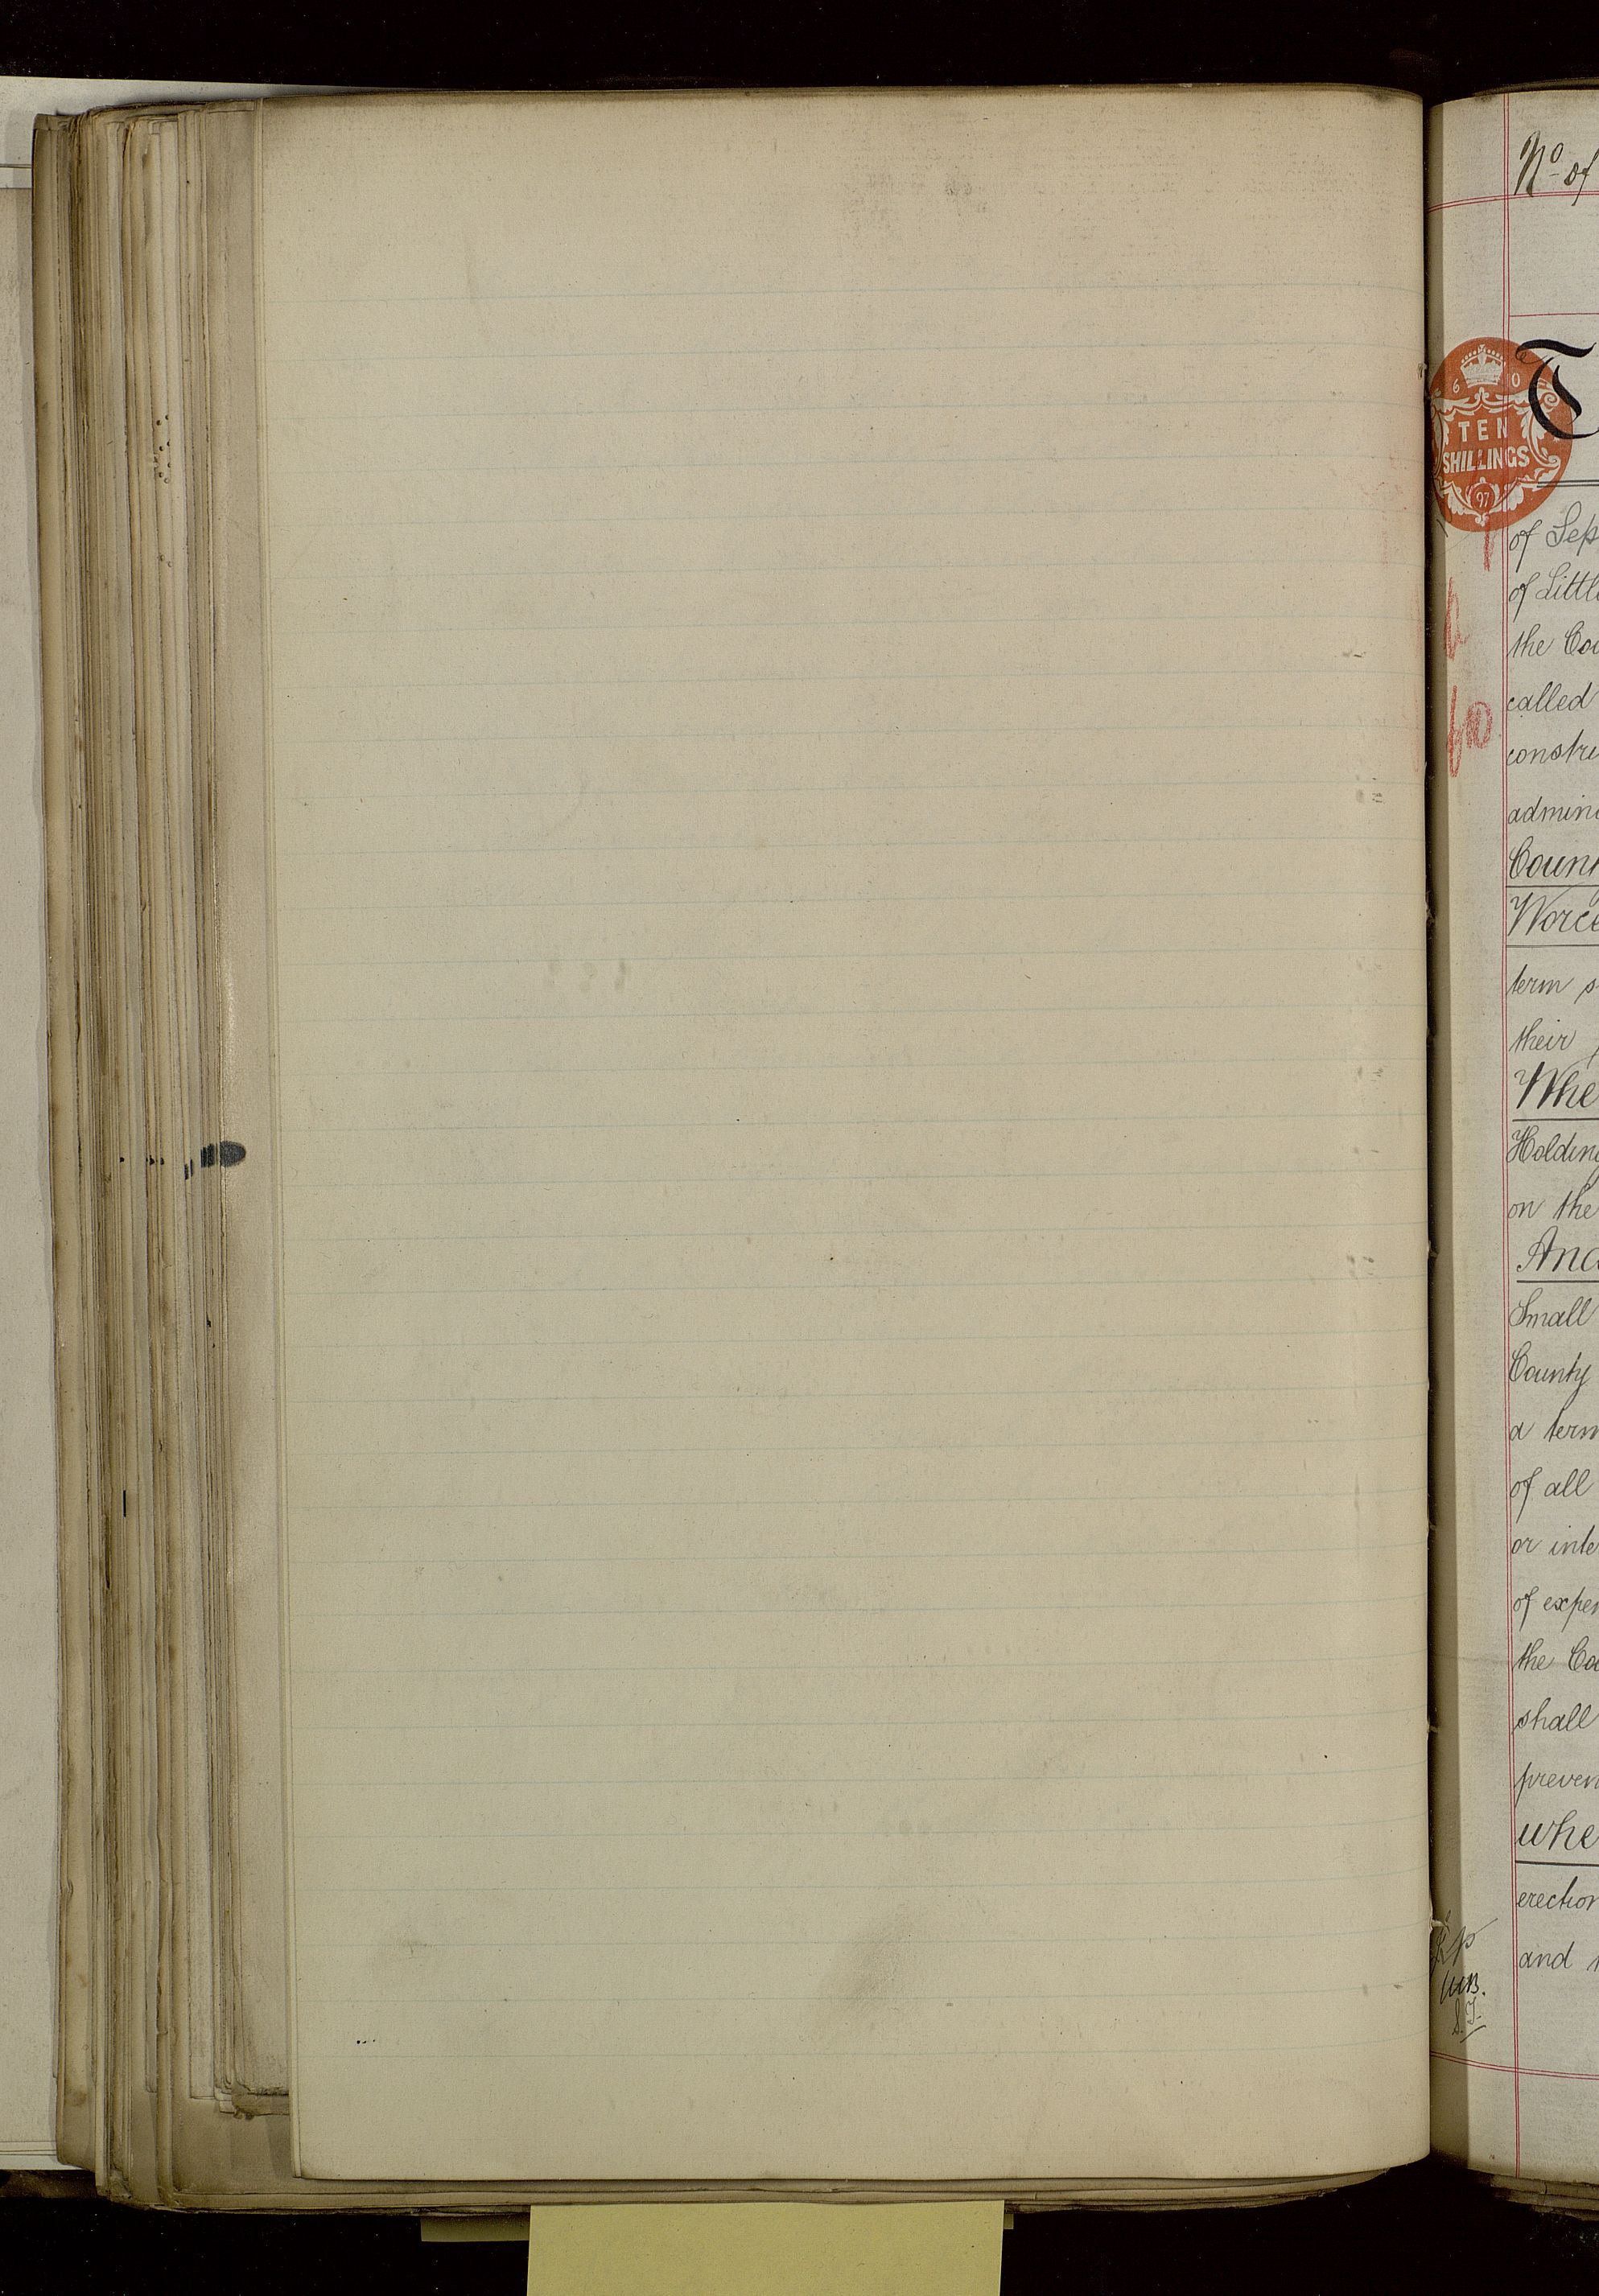 No of
6 10
TEN
SHILLINGS
97
T
of Sep
of Little
the Cou
called
constru
admini
Count
Worce
term s
their p
Whe
Holding
on the
And
Small
County
a term
of all
or inte
of expen
the Cou
shall
preven
whe
erection
and